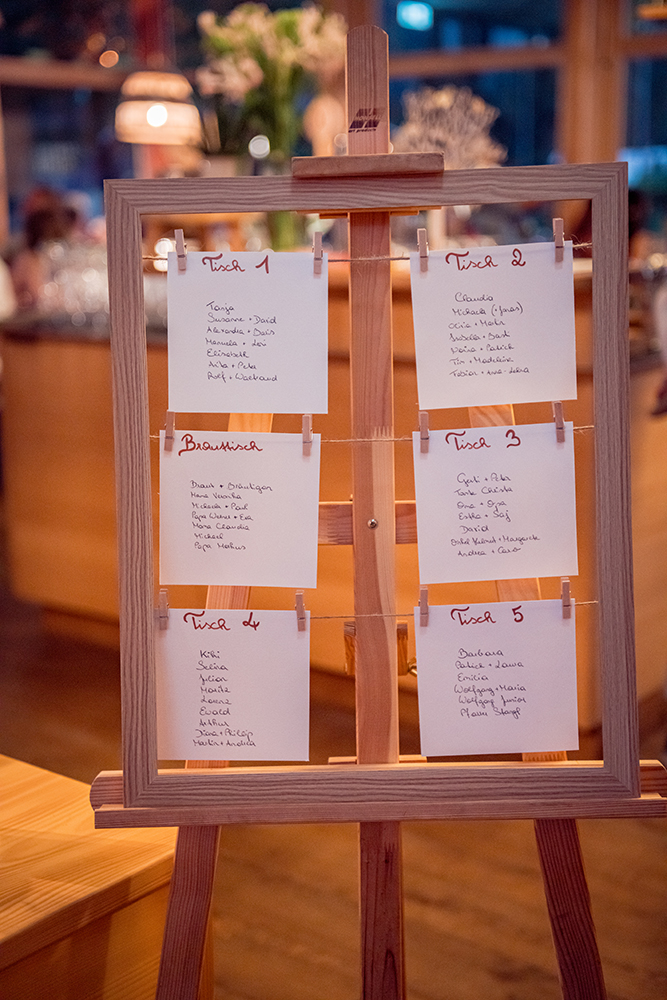 Tisch 1
Tanja
Susanne + David
Alexandra + Boris
Manuela + Levi
Elisabeth
Anita + Peter
Rolf + Waltraud
Tisch 2
Claudia
Michaela (+ Jonas)
Isabella + Basti
+ Patrick
Tim + Madeleine
Tobias + Anna-Lena
Brauttisch
Braut + Bräutigam
Mama Veronika
Michaela + Paul
Papa Werner + Eva
Mama Claudia
Michael
Papa Markus
Tisch 3
Gabi + Peter
Tante Christa
Oma + Opa
David
Onkel Helmut + Margarete
Andrea + Caro
Tisch 4
Kiki
Selina
Julian
Moritz
Lorenz
Ewald
Arthur
Diana + Philipp
Martin + Andrea
Tisch 5
Barbara
Patrick + Laura
Emilia
Wolfgang + Maria
Wolfgang Junior
Pfarrer Stangl